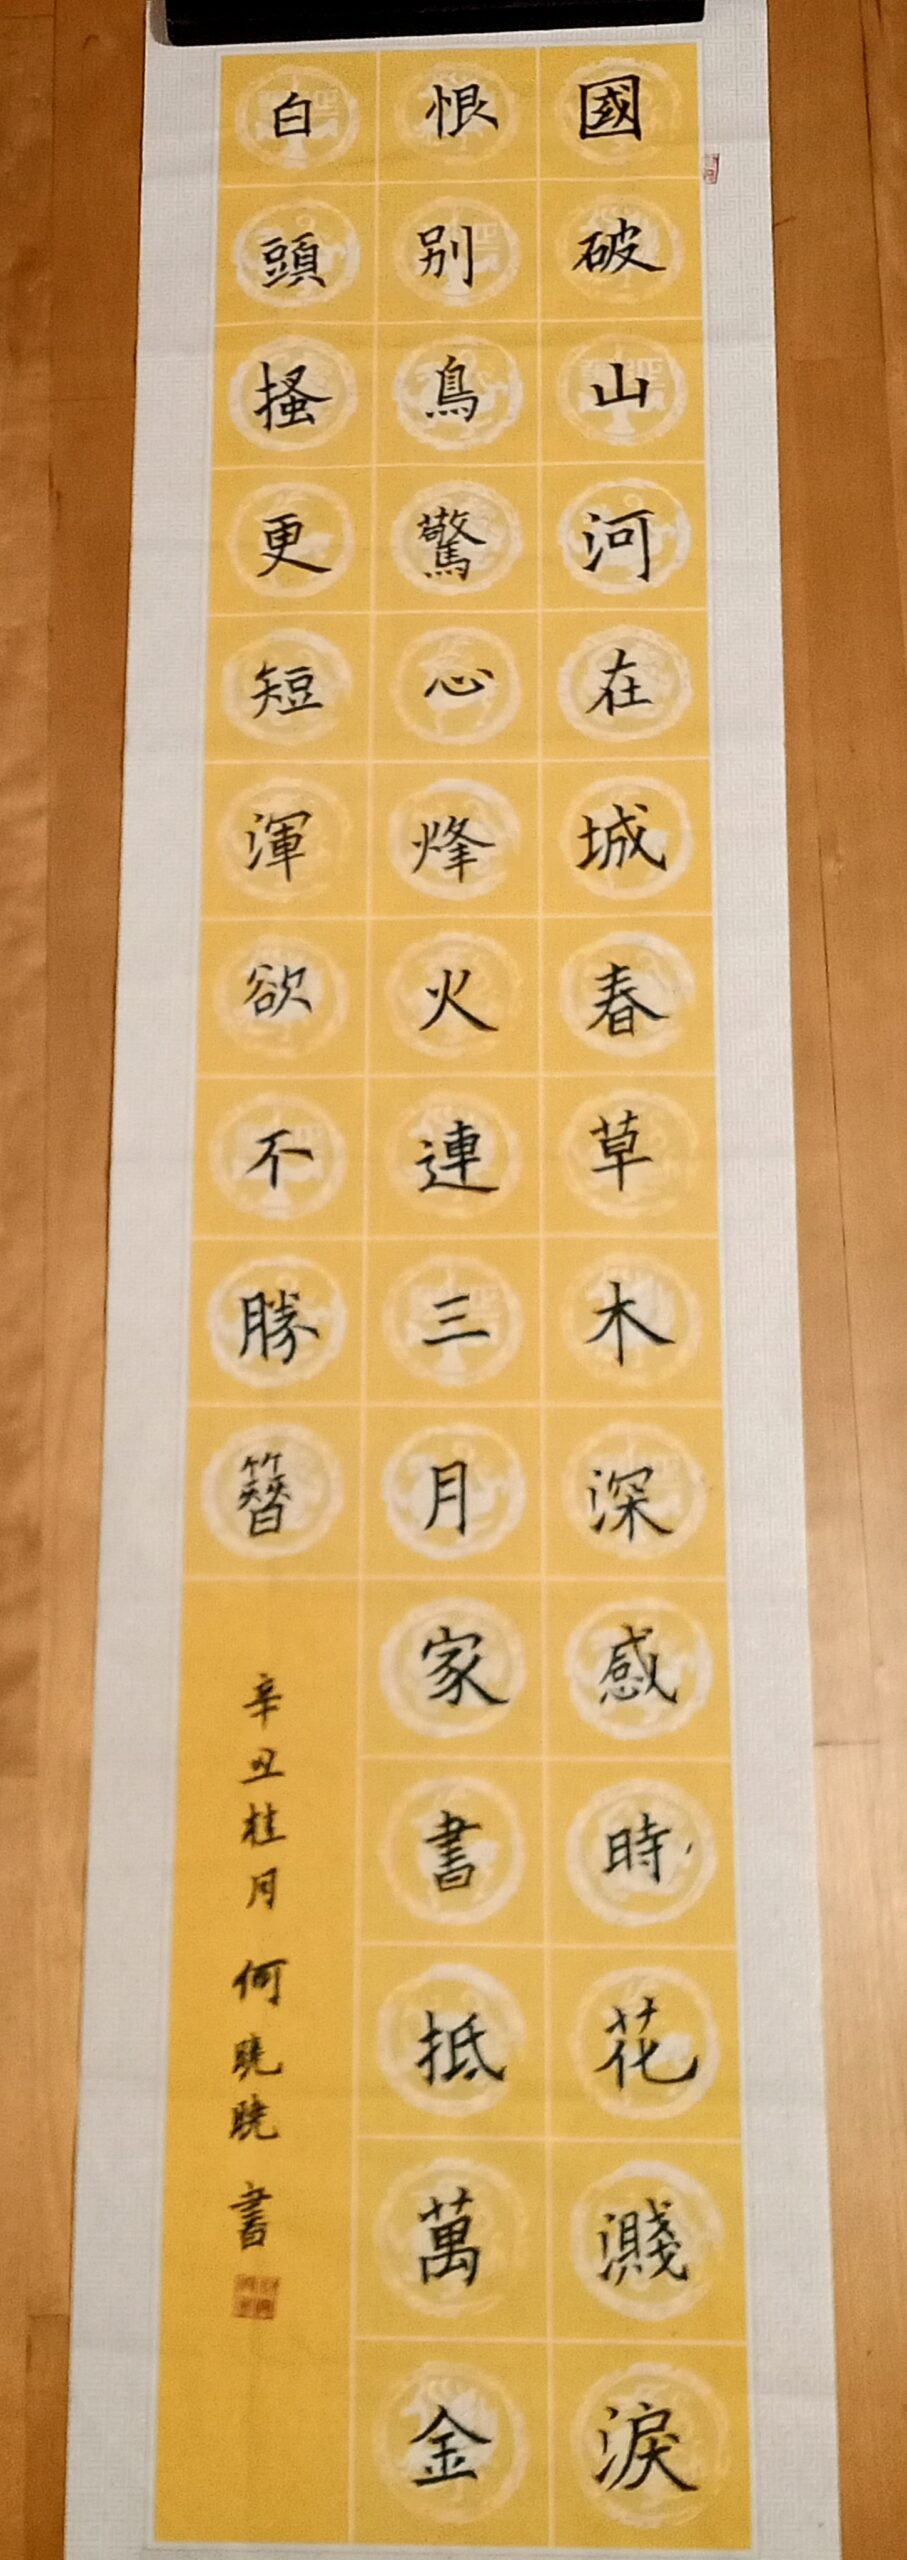 國破山河在城春草木深感時花濺淚
恨别鳥驚心烽火連三月家書抵萬金
白頭搔更短渾欲不勝簪
辛丑桂月 何曉曉 書